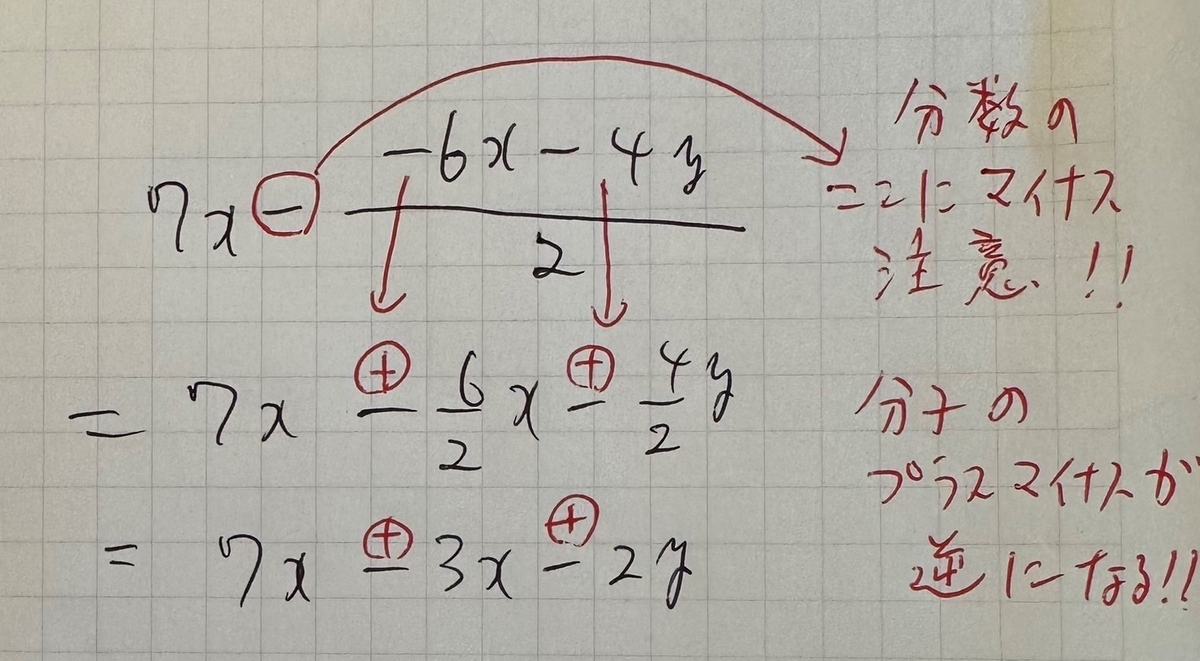 7x - (-6x - 4y)/2
分数の
ここにマイナス
注意!!
= 7x ⊕ - 6/2 x ⊕ - 4/2 y
分子の
プラスマイナスが
逆になる!!
= 7x ⊕ - 3x ⊕ - 2y